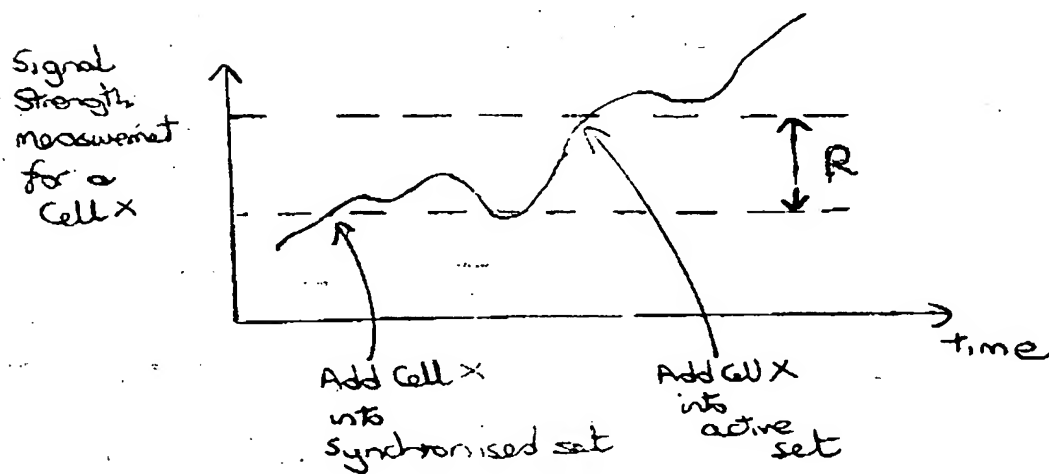 Signal
Strength
measuremet
for a
Cell X
R
time
Add Cell X
into
Synchronised set
Add Cell X
into
active
set